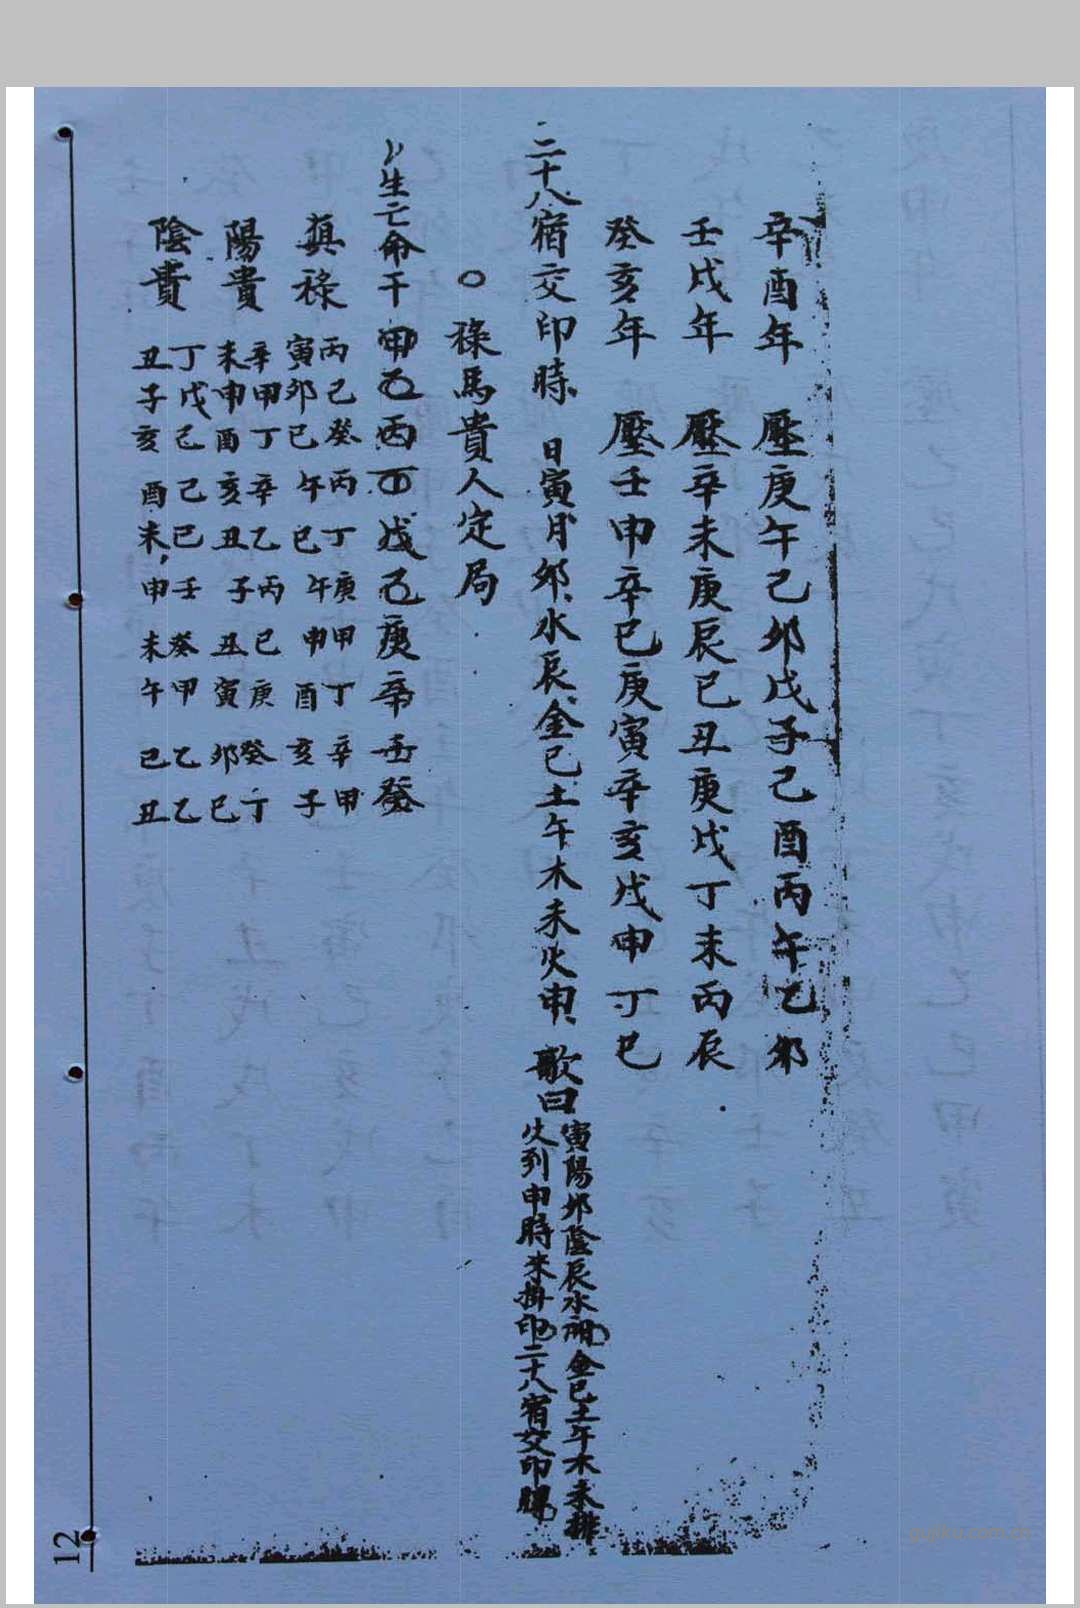 辛酉年 壓庚午己卯戊子己酉丙午乙卯
壬戌年 壓辛未庚辰己丑庚戌丁未丙辰
癸亥年 壓壬申辛巳庚寅辛亥戊申丁巳
二十八宿交印時 日寅月卯水辰金巳土午木未火申 歌曰
寅陽卯陰辰水金巳土午木未排
火列申時來掛印二十八宿交印
○祿馬貴人定局
生亡命干 甲乙丙丁戊己庚辛壬癸
真祿
丙己癸丙丁庚甲丁辛甲
寅卯巳午巳午申酉亥子
陽貴
辛甲丁辛乙丙己庚癸丁
未申酉亥丑子丑寅卯巳
陰貴
丁戊己己己壬癸甲乙乙
丑子亥酉未申未午巳丑
12